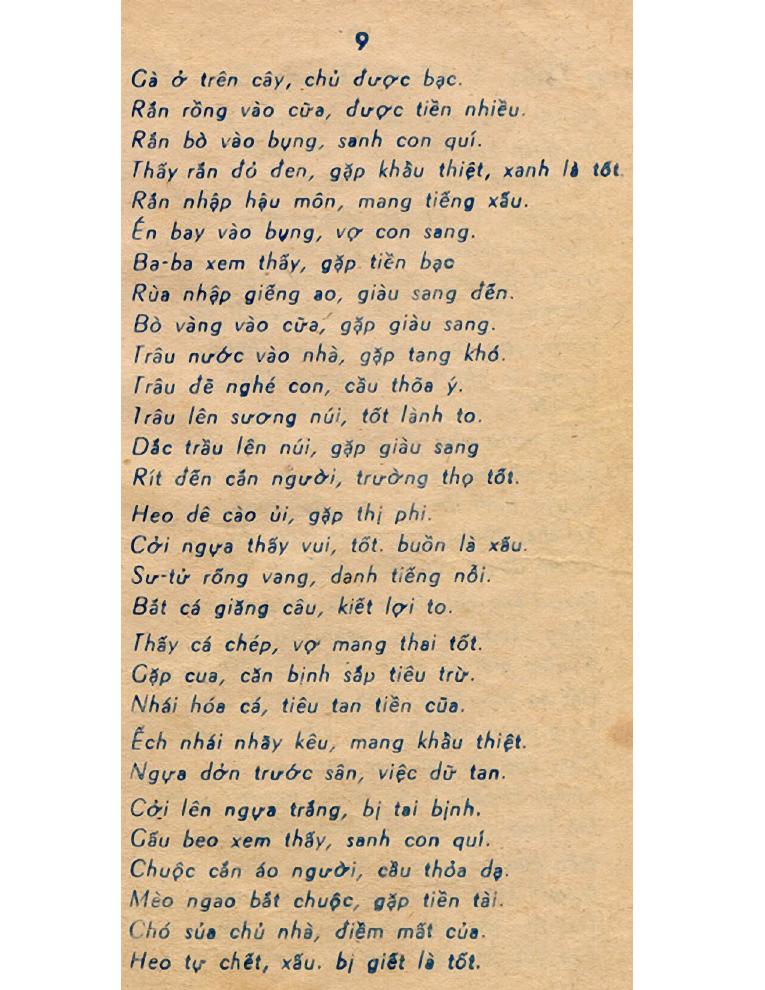 9
Gà ở trên cây, chủ được bạc.
Rắn rồng vào cữa, được tiền nhiều.
Rắn bò vào bụng, sanh con quí.
Thấy rắn đỏ đen, gặp khẩu thiệt, xanh là tốt.
Rắn nhập hậu môn, mang tiếng xấu.
Én bay vào bụng, vợ con sang.
Ba-ba xem thấy, gặp tiền bạc
Rùa nhập giếng ao, giàu sang đến.
Bò vàng vào cữa, gặp giàu sang.
Trâu nước vào nhà, gặp tang khó.
Trâu đẽ nghé con, cầu thõa ý.
Trâu lên sương núi, tốt lành to.
Dắc trầu lên núi, gặp giàu sang
Rít đến cắn người, trường thọ tốt.
Heo dê cào ủi, gặp thị phi.
Cởi ngựa thấy vui, tốt. buồn là xấu.
Sư-tử rống vang, danh tiếng nổi.
Bắt cá giăng câu, kiết lợi to.
Thấy cá chép, vợ mang thai tốt.
Gặp cua, căn bịnh sắp tiêu trừ.
Nhái hóa cá, tiêu tan tiền cũa.
Ếch nhái nhãy kêu, mang khẩu thiệt.
Ngựa dởn trước sân, việc dữ tan.
Cởi lên ngựa trắng, bị tai bịnh.
Gấu beo xem thấy, sanh con quí.
Chuộc cắn áo người, cầu thỏa dạ.
Mèo ngao bắt chuộc, gặp tiền tài.
Chó sủa chủ nhà, điềm mất của.
Heo tự chết, xấu. bị giết là tốt.